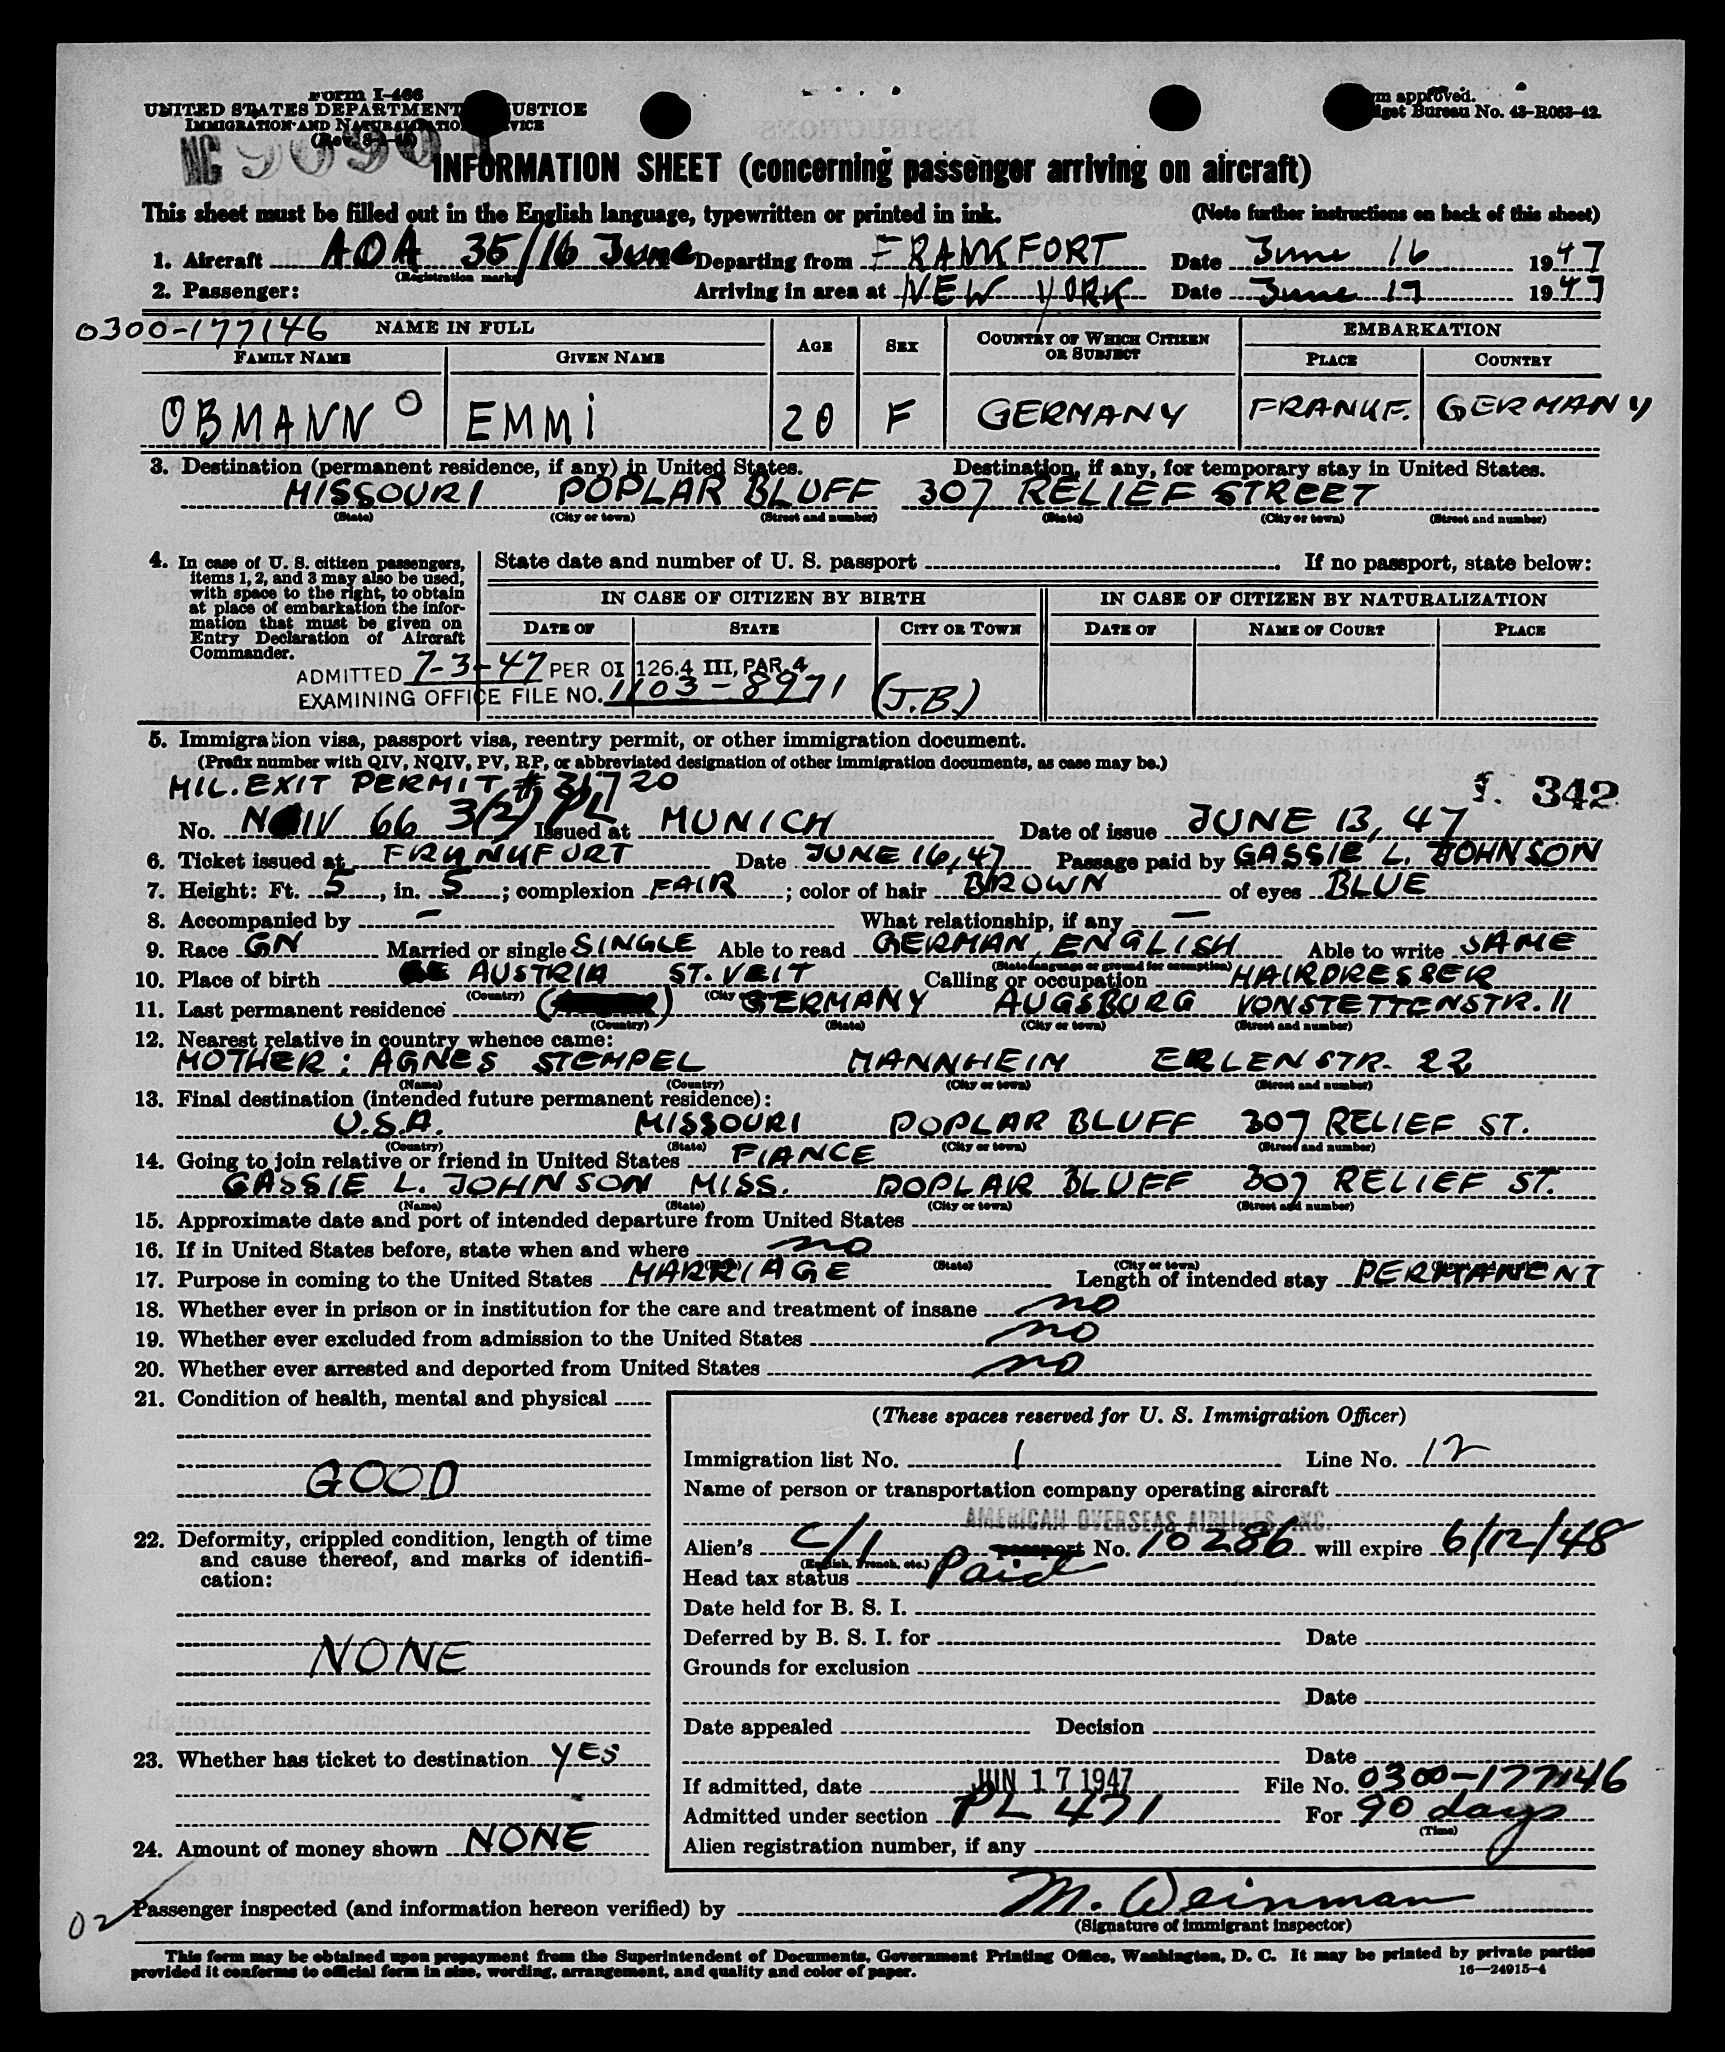 Form I-466
UNITED STATES DEPARTMENT JUSTICE
IMMIGRATION AND NATURALIZATION SERVICE
Form approved.
Budget Bureau No. 43-R063-42.
INFORMATION SHEET (concerning passenger arriving on aircraft)
This sheet must be filled out in the English language, typewritten or printed in ink. (Note further instructions on back of this sheet)
1. Aircraft AOA 35/16 June Departing from FRANKFORT Date June 16 1947
(Registration marks)
2. Passenger: Arriving in area at NEW YORK Date June 17 1947
0300-177146 NAME IN FULL AGE SEX COUNTRY OF WHICH CITIZEN OR SUBJECT EMBARKATION
FAMILY NAME GIVEN NAME PLACE COUNTRY
OBMANN O EMMI 20 F GERMANY FRANKF. GERMANY
3. Destination (permanent residence, if any) in United States. Destination, if any, for temporary stay in United States.
MISSOURI POPLAR BLUFF 307 RELIEF STREET
(State) (City or town) (Street and number) (State) (City or town) (Street and number)
4. In case of U. S. citizen passengers, items 1, 2, and 3 may also be used, with space to the right, to obtain at place of embarkation the information that must be given on Entry Declaration of Aircraft Commander.
State date and number of U. S. passport If no passport, state below:
IN CASE OF CITIZEN BY BIRTH IN CASE OF CITIZEN BY NATURALIZATION
DATE OF STATE CITY OR TOWN DATE OF NAME OF COURT PLACE
ADMITTED 7-3-47 PER OI 126.4 III, PAR. 4
EXAMINING OFFICE FILE NO. 1103-8971 (J.B.)
5. Immigration visa, passport visa, reentry permit, or other immigration document.
(Prefix number with QIV, NQIV, PV, RP, or abbreviated designation of other immigration documents, as case may be.)
MIL. EXIT PERMIT # 31720 342
No. 66 3(2) PL Issued at MUNICH Date of issue JUNE 13, 47
6. Ticket issued at FRANKFORT Date JUNE 16, 47 Passage paid by GASSIE L. JOHNSON
7. Height: Ft. 5, in. 5; complexion FAIR; color of hair BROWN of eyes BLUE
8. Accompanied by – What relationship, if any –
9. Race GN Married or single SINGLE Able to read GERMAN, ENGLISH Able to write SAME
(State language or ground for exemption)
10. Place of birth AUSTRIA ST. VEIT Calling or occupation HAIRDRESSER
(Country)
11. Last permanent residence GERMANY AUGSBURG VONSTETTENSTR. 11
(Country) (State) (City or town) (Street and number)
12. Nearest relative in country whence came:
MOTHER: AGNES STEMPEL MANNHEIM ERLENSTR. 22
(Name) (Country) (City or town) (Street and number)
13. Final destination (intended future permanent residence):
U.S.A. MISSOURI POPLAR BLUFF 307 RELIEF ST.
(Country) (State) (City or town) (Street and number)
14. Going to join relative or friend in United States FIANCE
GASSIE L. JOHNSON MISS. POPLAR BLUFF 307 RELIEF ST.
(Name) (State) (City or town) (Street and number)
15. Approximate date and port of intended departure from United States
16. If in United States before, state when and where no
(State) (City or town)
17. Purpose in coming to the United States MARRIAGE Length of intended stay PERMANENT
18. Whether ever in prison or in institution for the care and treatment of insane no
19. Whether ever excluded from admission to the United States no
20. Whether ever arrested and deported from United States no
21. Condition of health, mental and physical
GOOD
22. Deformity, crippled condition, length of time and cause thereof, and marks of identification:
NONE
23. Whether has ticket to destination YES
24. Amount of money shown NONE
(These spaces reserved for U. S. Immigration Officer)
Immigration list No. 1 Line No. 12
Name of person or transportation company operating aircraft
AMERICAN OVERSEAS AIRLINES, INC.
Alien's C/I passport No. 10286 will expire 6/12/48
(English, French, etc.)
Head tax status Paid
Date held for B. S. I.
Deferred by B. S. I. for Date
Grounds for exclusion
Date
Date appealed Decision
Date
If admitted, date JUN 17 1947 File No. 0300-177146
Admitted under section PL 471 For 90 days
(Time)
Alien registration number, if any
02 Passenger inspected (and information hereon verified) by M. Weinman
(Signature of immigrant inspector)
This form may be obtained upon prepayment from the Superintendent of Documents, Government Printing Office, Washington, D. C. It may be printed by private parties
provided it conforms to official form in size, wording, arrangement, and quality and color of paper.
16—24915-4